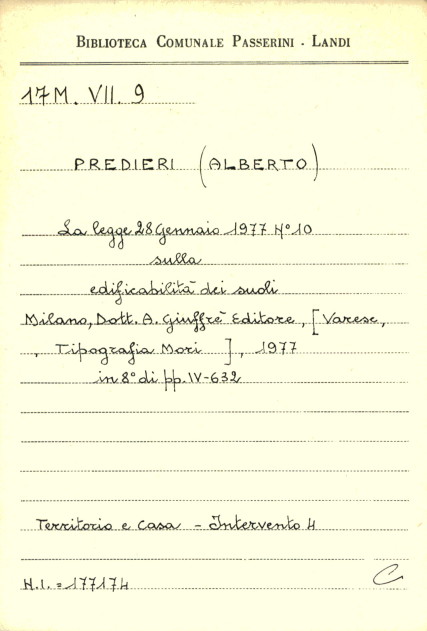 BIBLIOTECA COMUNALE PASSERINI - LANDI
17M. VII. 9
PREDIERI (ALBERTO)
La legge 28 Gennaio 1977 N° 10
sulla
edificabilità dei suoli
Milano, Dott. A. Giuffrè Editore, [Varese,
, Tipografia Mori ], 1977
in 8° di pp. IV-632
Territorio e casa - Intervento 4
N.I. = 177174
C